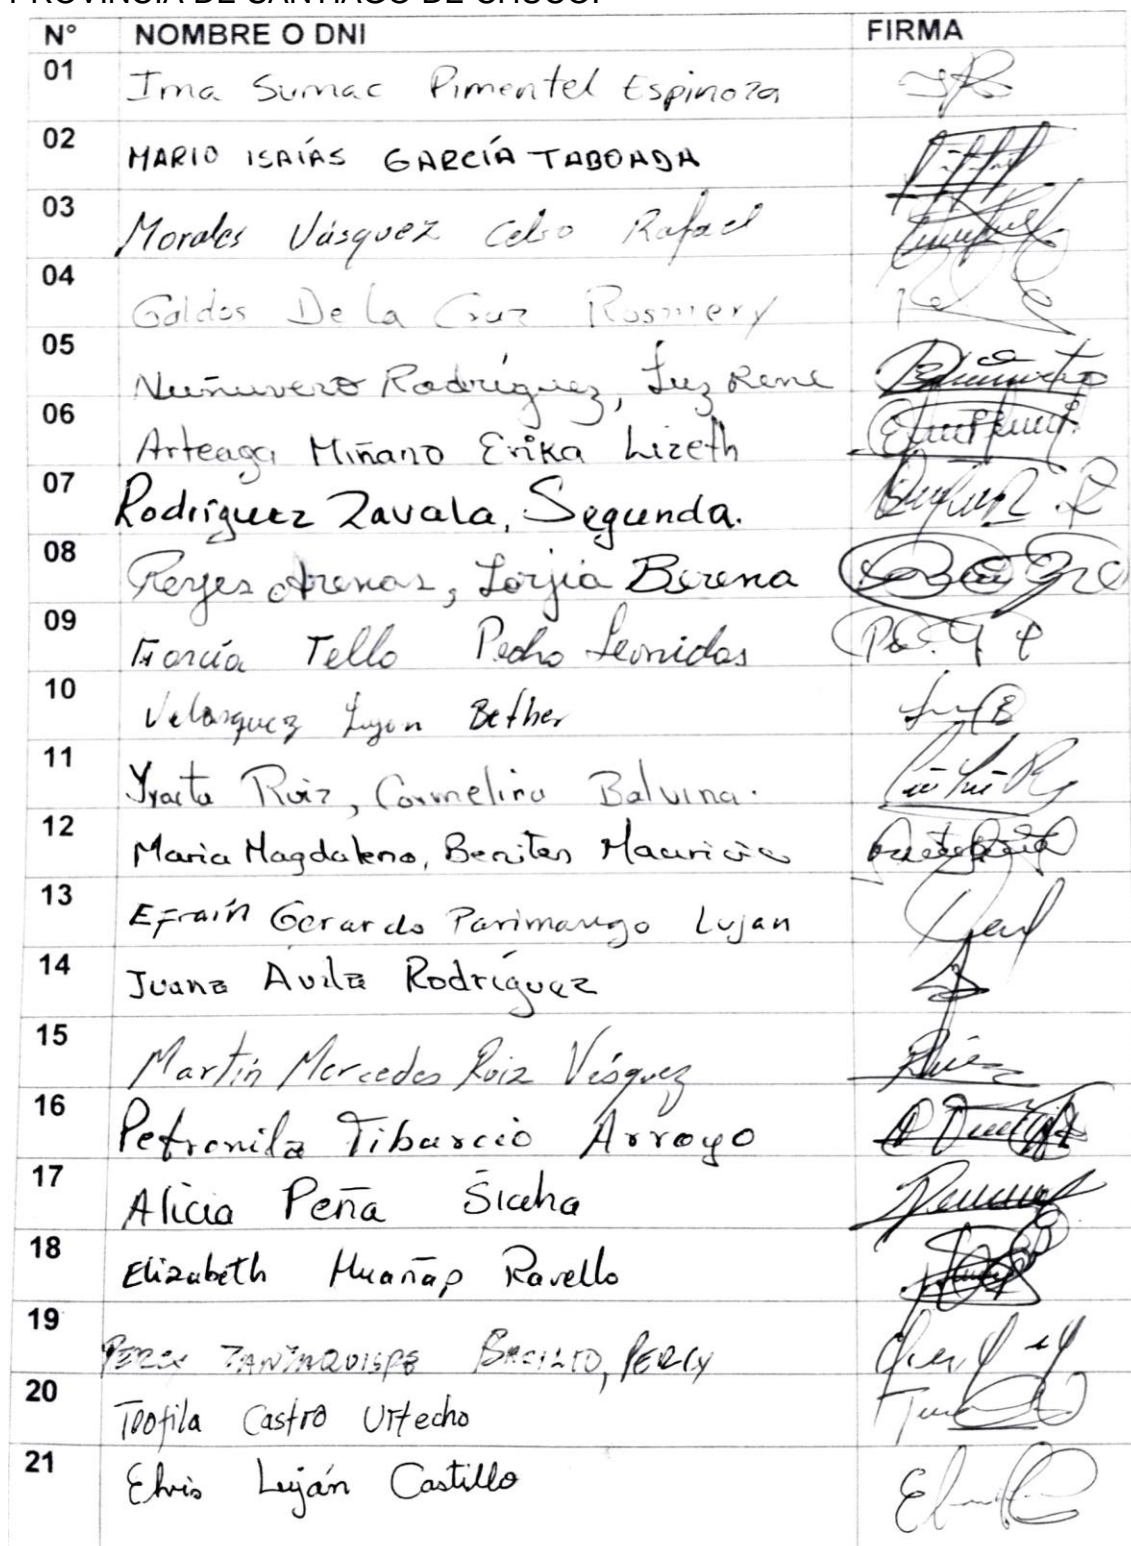 PROVINCIA DE SANTIAGO DE CHUCO.
N° NOMBRE O DNI FIRMA
01 Ima Sumac Pimentel Espinoza
02 MARIO ISAÍAS GARCÍA TABOADA
03 Morales Vásquez Celso Rafael
04 Galdos De la Cruz Rosmery
05 Nuñuvero Rodríguez, Luz Rene
06 Arteaga Miñano Erika Lizeth
07 Rodríguez Zavala, Segunda.
08 Reyes Arenas, Lorjia Berena
09 García Tello Pedro Leonidas
10 Velasquez Lujan Bether
11 Yparta Ruiz, Carmelina Balvina.
12 Maria Magdalena, Benites Mauricio
13 Efraín Gerardo Parimango Lujan
14 Juana Avila Rodríguez
15 Martín Mercedes Ruiz Vásquez
16 Petronila Tiburcio Arroyo
17 Alicia Peña Sicha
18 Elizabeth Huañap Ravello
19 PERCY TANTAQUISPE BACILIO, PERCY
20 Teofila Castro Urtecho
21 Elvis Luján Castillo